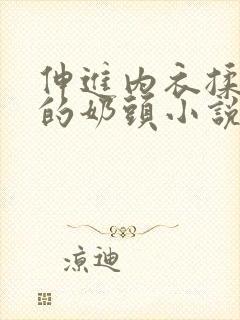 伸進內衣揉
的奶頭小說
涼迪